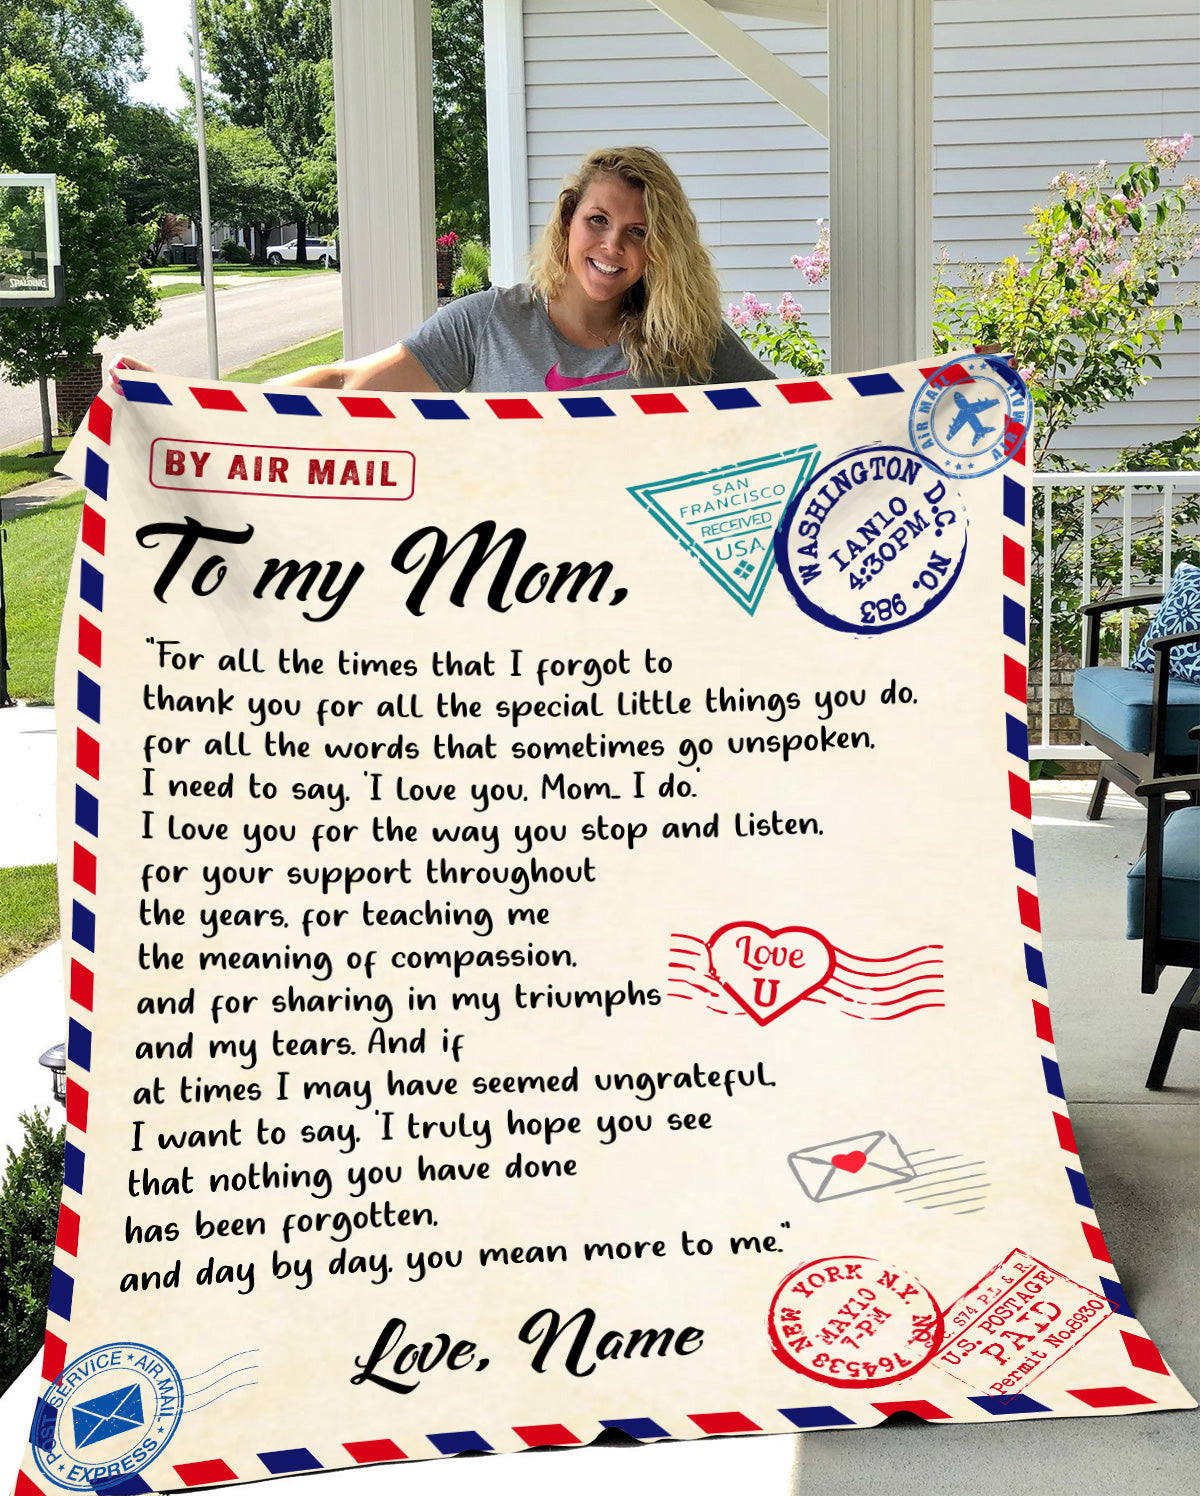 SPALDING
BY AIR MAIL
AIR MAIL
AIR MAIL
SAN
FRANCISCO
RECEIVED
USA
WASHINGTON D.C. NO. 983
IAN10
4:30PM
To my Mom,
"For all the times that I forgot to
thank you for all the special little things you do,
for all the words that sometimes go unspoken,
I need to say, 'I love you, Mom... I do.'
I love you for the way you stop and listen,
for your support throughout
the years, for teaching me
the meaning of compassion,
and for sharing in my triumphs
and my tears. And if
at times I may have seemed ungrateful,
I want to say, 'I truly hope you see
that nothing you have done
has been forgotten,
and day by day, you mean more to me."
Love
U
Love, Name
NEW YORK N.Y. NO. 764538
MAY10
7-PM
C. S74 P.L & R.
U.S. POSTAGE
PAID
Permit No.8930
POST SERVICE ★ AIRMAIL ★
EXPRESS